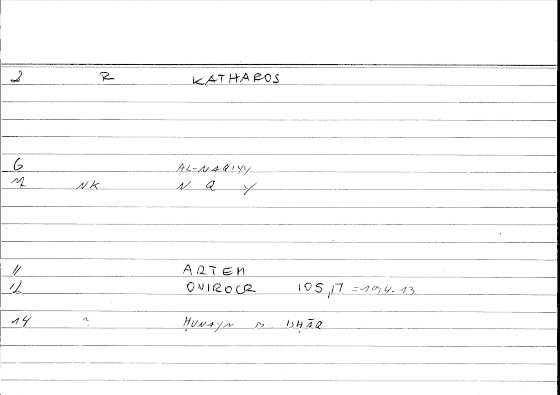 2 R KATHAROS
6 AL-NAQIYY
NK N Q Y
11 ARTEM
12 ONIROCR 105,17 = 194.13
14 ḤUNAYN B ISḤĀQ